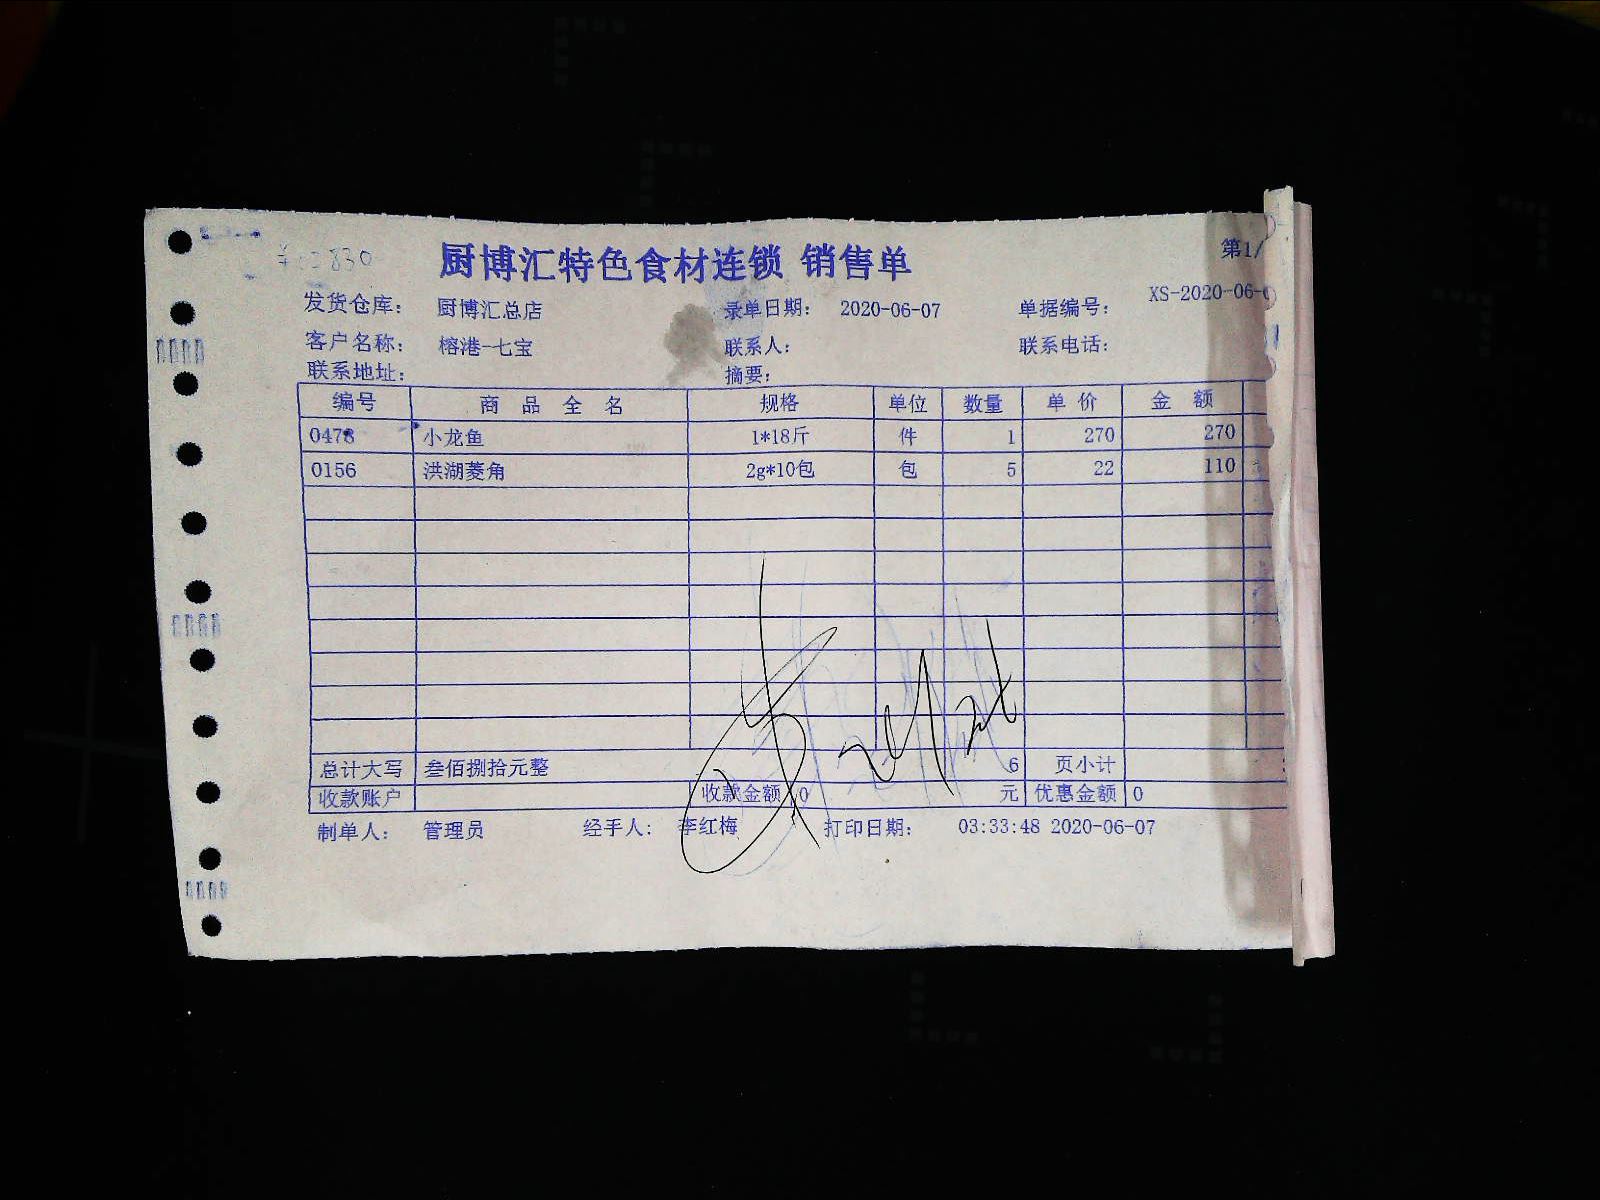 厨博汇特色食材连锁 销售单
第1/
发货仓库： 厨博汇总店 录单日期： 2020-06-07 单据编号： XS-2020-06-
客户名称： 榕港-七宝 联系人： 联系电话：
联系地址： 摘要：
编号 商品全名 规格 单位 数量 单价 金额
0478 小龙鱼 1*18斤 件 1 270 270
0156 洪湖菱角 2g*10包 包 5 22 110
总计大写 叁佰捌拾元整 6 页小计
收款账户 收款金额 0 元 优惠金额 0
制单人： 管理员 经手人： 李红梅 打印日期： 03:33:48 2020-06-07